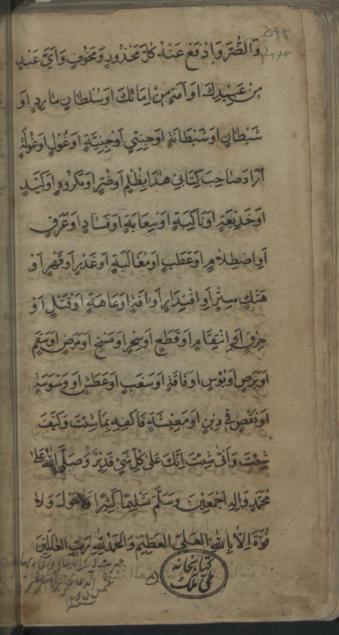 وَالضُّرَّ وَادْفَعْ عَنْهُ كُلَّ مَحْذُورٍ وَمَخُوفٍ وَاَيَّ عَبْدٍ
مِنْ عَبِيدِكَ اَوْ اَمَةٍ مِنْ اِمَائِكَ اَوْ سُلْطَانٍ مَارِدٍ اَوْ
شَيْطَانٍ اَوْ شَيْطَانَةٍ اَوْ جِنِّيٍّ اَوْ جِنِّيَّةٍ اَوْ غُولٍ اَوْ غُولَةٍ
اَرَادَ صَاحِبَ كِتَابِي هٰذَا بِظُلْمٍ اَوْ ضُرٍّ اَوْ مَكْرُوهٍ اَوْ كَيْدٍ
اَوْ خَدِيعَةٍ اَوْ نِكَايَةٍ اَوْ سِعَايَةٍ اَوْ فَسَادٍ اَوْ غَرَقٍ
اَوِ اصْطِلَامٍ اَوْ عَطَبٍ اَوْ مُغَالَبَةٍ اَوْ غَدْرٍ اَوْ قَهْرٍ اَوْ
هَتْكِ سِتْرٍ اَوِ اقْتِدَارٍ اَوْ اٰفَةٍ اَوْ عَاهَةٍ اَوْ قَتْلٍ اَوْ
حَرْقٍ اَوِ انْتِقَامٍ اَوْ قَطْعٍ اَوْ سِحْرٍ اَوْ مَسْخٍ اَوْ مَرَضٍ اَوْ سَقَمٍ
اَوْ بَرَصٍ اَوْ بُؤْسٍ اَوْ فَاقَةٍ اَوْ سَغَبٍ اَوْ عَطَشٍ اَوْ وَسْوَسَةٍ
اَوْ نَقْصٍ فِي دِينٍ اَوْ مَعِيشَةٍ فَاكْفِهِ بِمَا شِئْتَ وَكَيْفَ
شِئْتَ وَاَنّٰى شِئْتَ اِنَّكَ عَلٰى كُلِّ شَيْءٍ قَدِيرٌ وَصَلَّى اللهُ عَلٰى
مُحَمَّدٍ وَاٰلِهِ اَجْمَعِينَ وَسَلَّمَ تَسْلِيمًا كَثِيرًا وَلَا حَوْلَ وَلَا
قُوَّةَ اِلَّا بِاللهِ الْعَلِيِّ الْعَظِيمِ وَالْحَمْدُ لِلهِ رَبِّ الْعَالَمِينَ
كتابخانه
ملی ملک